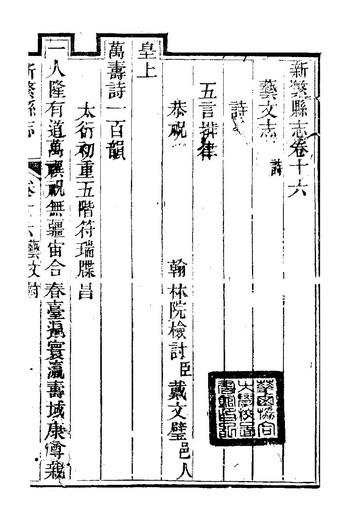 新繁縣志卷十六
藝文志 詩
詩
五言排律
恭祝 翰林院檢討臣戴文璧邑人
皇上
萬壽詩一百韻
太衍初重五階符瑞牒昌
一人隆有道萬禩祝無疆宙合春臺遍寰瀛壽域康尊栽
新繁縣志 卷十六藝文